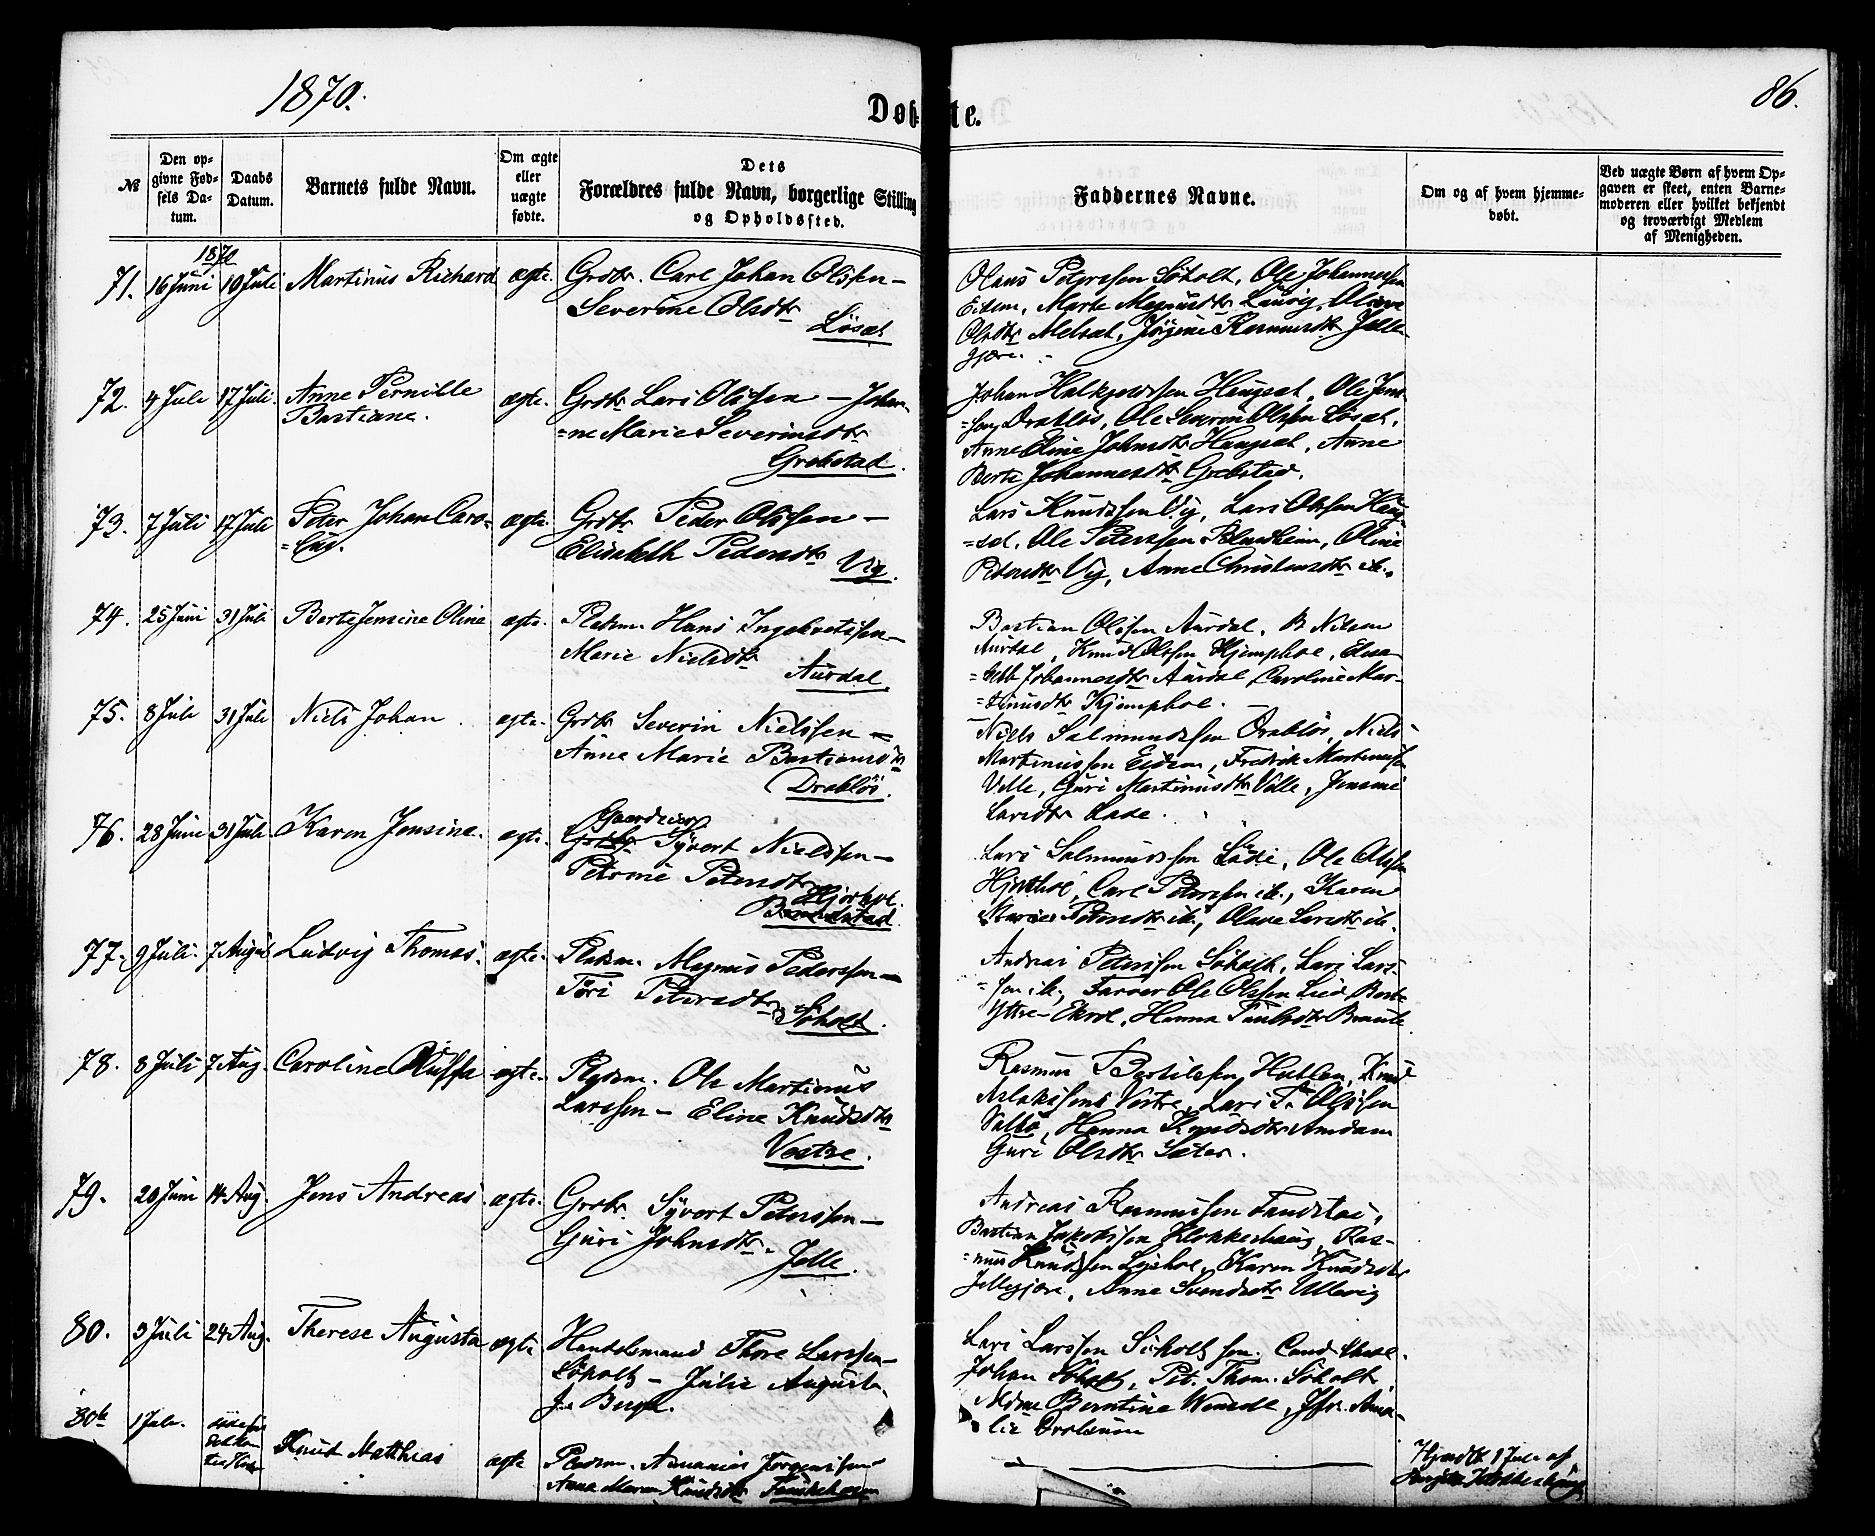 1870.
Døbte.
86.
№
Den opgivne Fødsels Datum.
Daabs Datum.
Barnets fulde Navn.
Om ægte eller uægte fødte.
Dets Forældres fulde Navn, borgerlige Stilling og Opholdssted.
Faddernes Navne.
Om og af hvem hjemmedøbt.
Ved uægte Børn af hvem Opgaven er skeet, enten Barnemoderen eller hvilket bekjendt og troværdigt Medlem af Menigheden.
1870
71. 16 Juni 10 Juli Martinus Richard ægte. Grdbr. Carl Johan Olssen –
Severine Olsdtr
Løset
Olaus Peterssen Søholt, Ole Johannessen
Eidem, Marte Magnusdtr
Olsdtr Melset, Jørgine Rasmusdtr Jelle
gjære.
72. 4 Juli 17 Juli Anne Pernille
Bastiane.
ægte. Grdbr Lars Olssen – Johan-
=ne Marie Severinsdtr
Grebstad.
Johan Haugset, Ole Jens-
=sen Drabløs, Ole Severin Olssen Løset,
Anne Eline Johnsdtr Haugset, Anne
Berte Johannesdtr Grebstad.
73. 7 Juli 17 Juli Peter Johan Caro-
=lus.
ægte. Grdbr Peder Olssen –
Elisabeth Pedersdtr
Vig.
Lars Knudssen Vig, Lars Olssen Haug
=set, Ole Peterssen Blindheim, Oline
Petersdtr Vig, Anne Christensdtr ib.
74. 25 Juni 31 Juli Berte Jensine Oline ægte. Pladsm. Hans Ingebretssen –
Marie Nielsdtr
Aurdal
Bastian Olssen Aurdal, B Nilsen
Aurdal, Knud Olssen Kjemphol, Elisa
=beth Johannesdtr Aurdal, Caroline Mar-
=tinusdtr Kjemphol. –
75. 8 Juli 31 Juli Niels Johan. ægte. Grdbr Severin Nielssen –
Anne Marie Bastiansdtr
Drabløs.
Niels Salmundssen Drabløs, Niels
Martinussen Eidem, Fredrik Martinussen
Velle, Guri Martinusdtr Velle, Jensine
Larsdtr Lade.
76. 28 Juni 31 Juli Karen Jensine. ægte. Gaardbruger
Grdbr Syvert Nielssen –
Petrine Petersdtr
Hjorthol.
Lars Salmundssen Lade, Ole Olssen
Hjorthol, Carl Peterssen ib., Karen
Marie Petersdtr ib., Olave Larsdtr ib.
77. 9 Juli. 7 August Ludvig Thomas. ægte. Pladsm. Magnus Pederssen –
Petersdtr
Søholt.
Andreas Peterssen Søholt, Lars Lars-
=sen ib., Farver Ole Olssen Lied, Berte
Ytre-Ekroll, Hanna Paulsdtr Braute
78. 8 Juli 7 Aug. Caroline Oluffa ægte. Pladsm. Ole Martinus
Larssen – Eline Knudsdtr
Vestre.
Rasmus Bertilssen Hatlen, Knud
Aslakssens Vestre, Lars T. Olssen
Valbø, Hanna Knudsdtr Amdam
Guri Olsdtr Sæter.
79. 20 Juni 14 Aug. Jens Andreas ægte. Grdbr. Syvert Peterssen –
Guri Johnsdtr.
Jelle.
Andreas Rasmussen Tandstad,
Bastian Jakobssen Klokkerhaug, Ras-
=mus Knudssen Karen Knudsdtr
Jellegjære, Anne Svendsdtr Ullavig
80. 3 Juli 24 Aug. Therese Augusta ægte Handelsmand Thore Larssen
Søholt – Julie Augusta
f. Bergh.
Lars Larssen Søholt sen. Cand.
Johan Søholt, Pet. Thom. Søholt,
Mdme Berntine Wendel, Jfr. Ama-
lie
80b 1 Juli. Knut Matthias ægte Pladsm. Ananias Jørgenssen
Anna Maren Knudsdtr
Hjmdbt 1 Juli af
Klokkerhaug